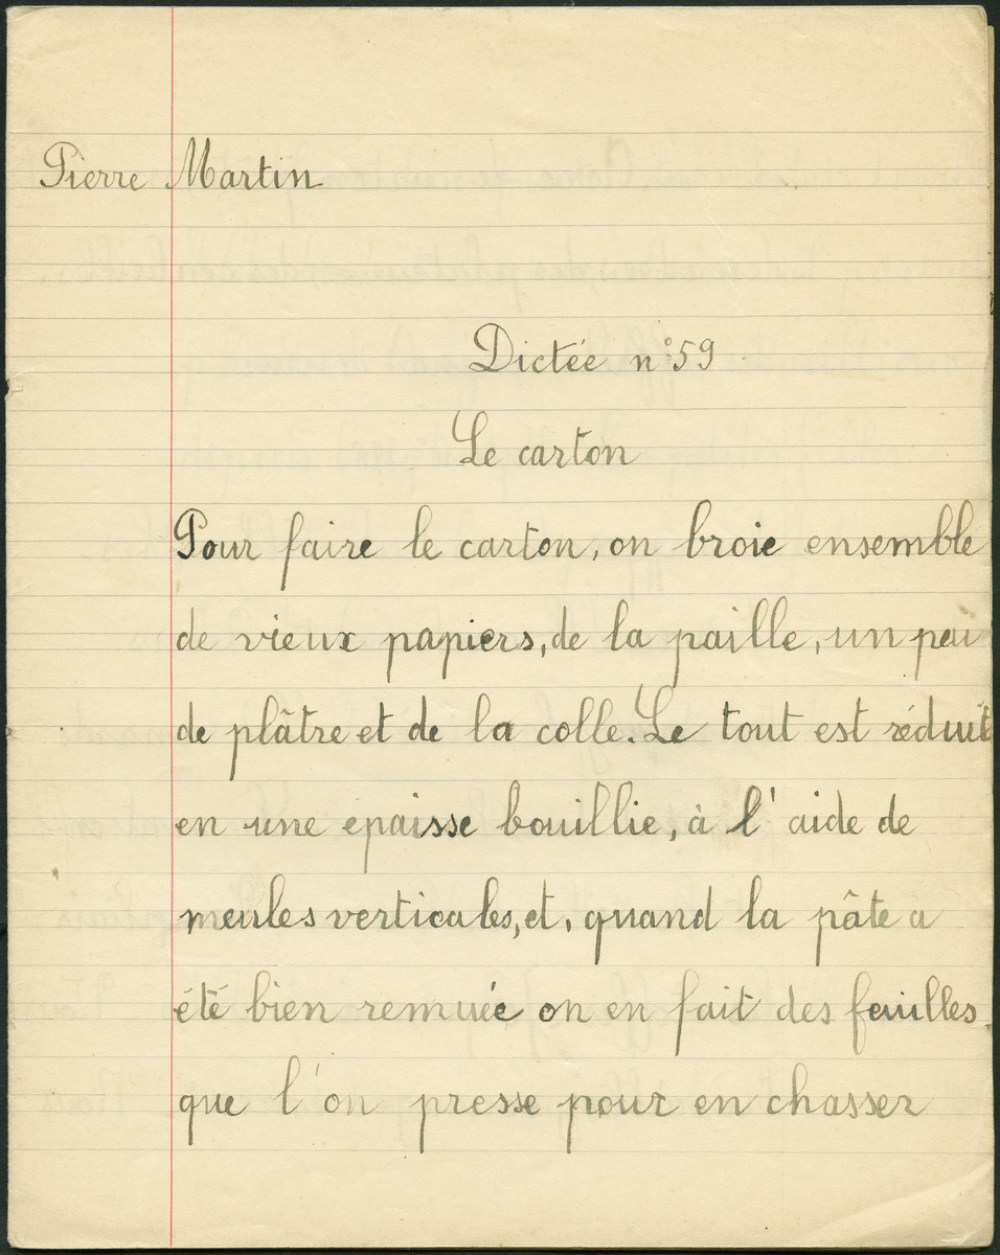 Pierre Martin
Dictée n°59
Le carton
Pour faire le carton, on broie ensemble
de vieux papiers, de la paille, un peu
de plâtre et de la colle. Le tout est réduit
en une épaisse bouillie, à l'aide de
meules verticales, et, quand la pâte a
été bien remuée on en fait des feuilles
que l'on presse pour en chasser